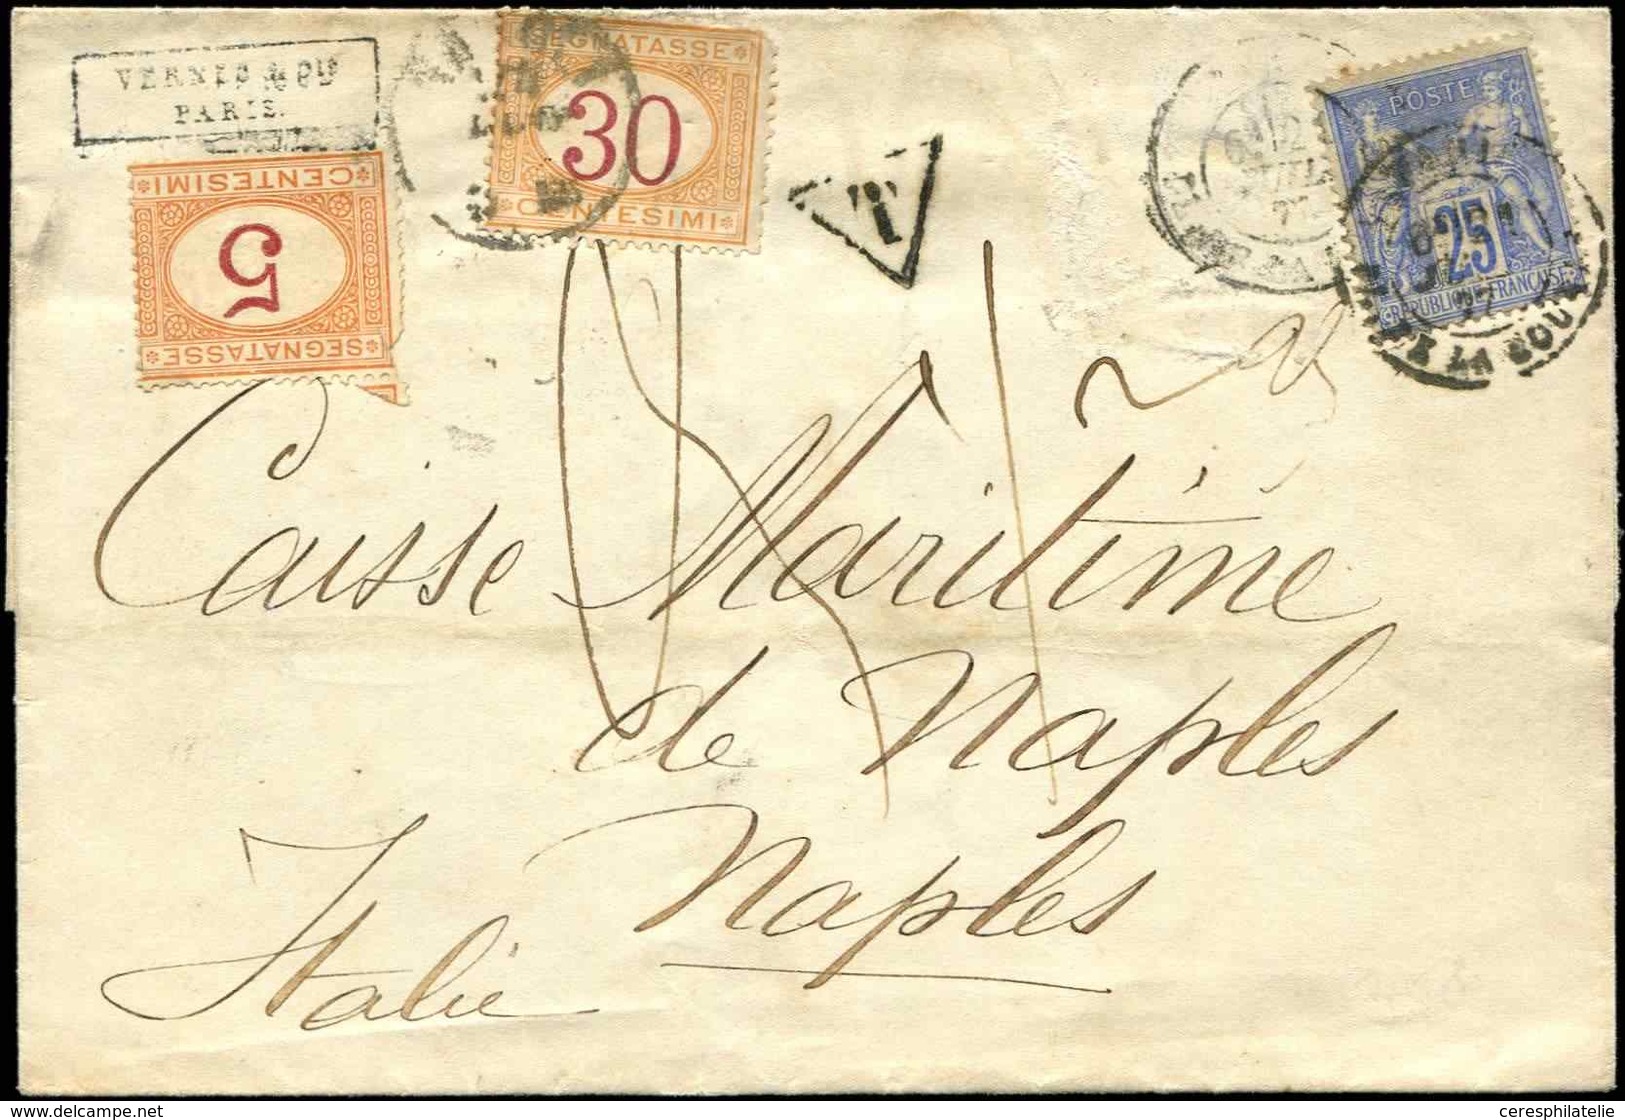 VERNES & Cie
PARIS.
SEGNATASSE
30
CENTESIMI
CENTESIMI
5
SEGNATASSE
T
POSTE
25
REPUBLIQUE FRANÇAISE
PL. DE LA BOURSE
Caisse Maritime
de Naples
Naples
Italie
www.delcampe.net
ceresphilatelie